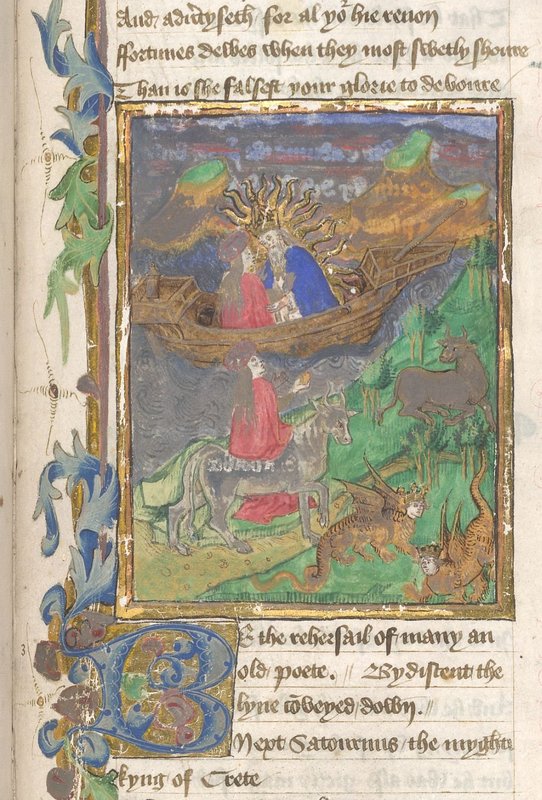 And aduertyseth for al yor hie renon
ffortunes delues when they most swetly shoure
Than is she falsest your glorie to devoure
BE the rehersail of many an
old poete. // By discent the
lyne cōveyed down. //
Next Satournus / the myghty
kyng of Crete
3